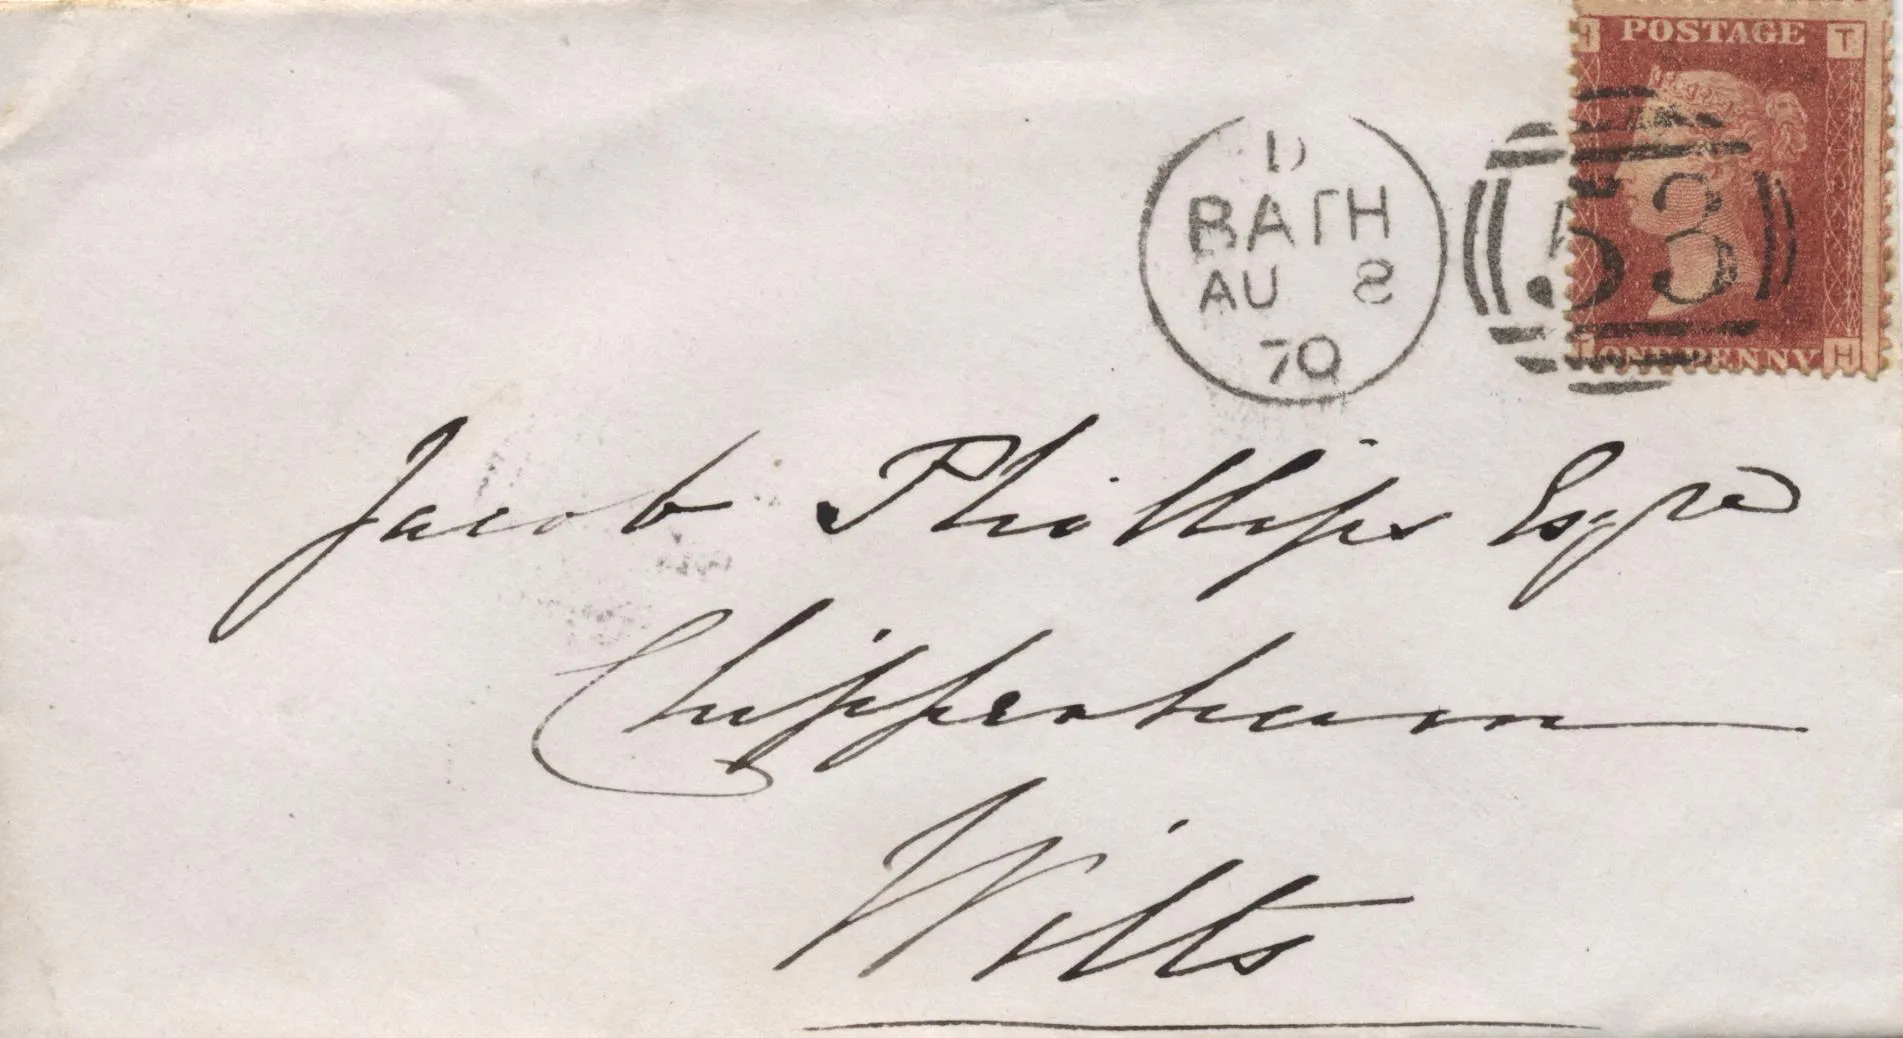 POSTAGE
T
D
BATH
AU 8
70
53
ONE PENNY
H
Jacob Phillips Esqre
Chippenham
Wilts